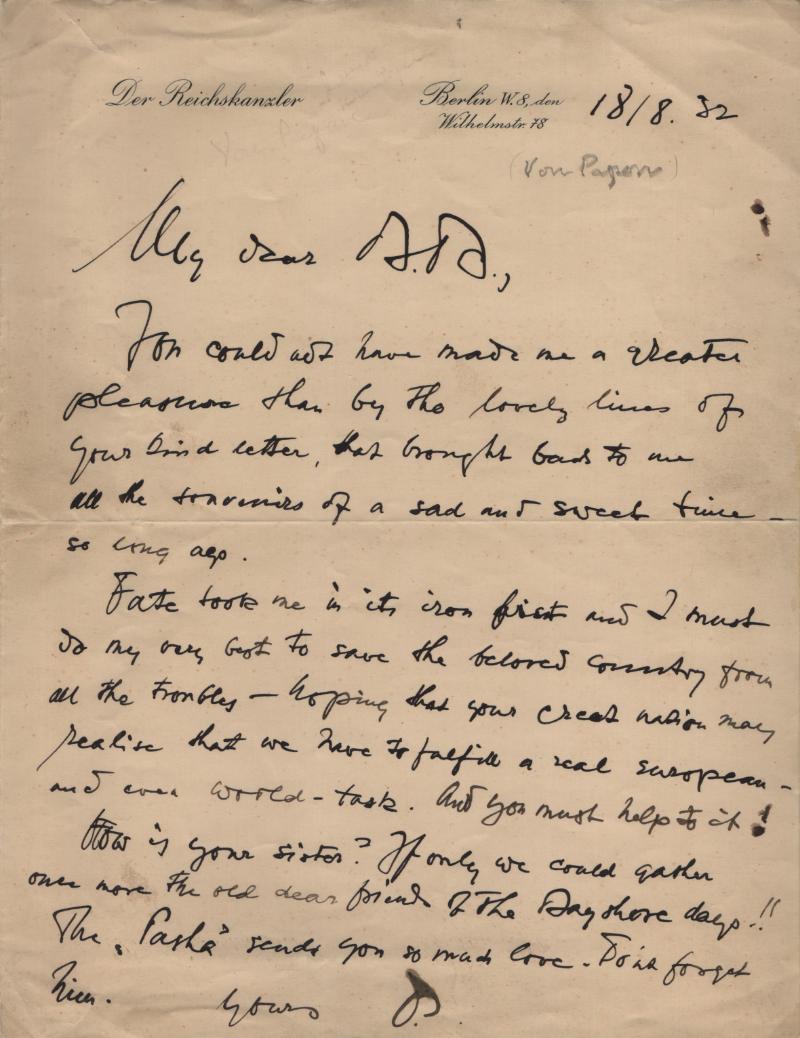 Der Reichskanzler
Berlin W.8, den 18/8. 32
Wilhelmstr. 78
(Von Papen)
My dear B.B.,
You could not have made me a greater
pleasure than by the lovely lines of
your kind letter, that brought back to me
all the souvenirs of a sad and sweet time –
so long ago.
Fate took me in its iron first and I must
do my very best to save the beloved country from
all the troubles – hoping that your great nation may
realise that we have to fulfill a real european-
and even world-task. And you must help to it!
How is your sister? If only we could gather
once more the old dear friends of the Bayshore days!!
The „Pasha" sends you so much love. Don't forget
him.
Yours